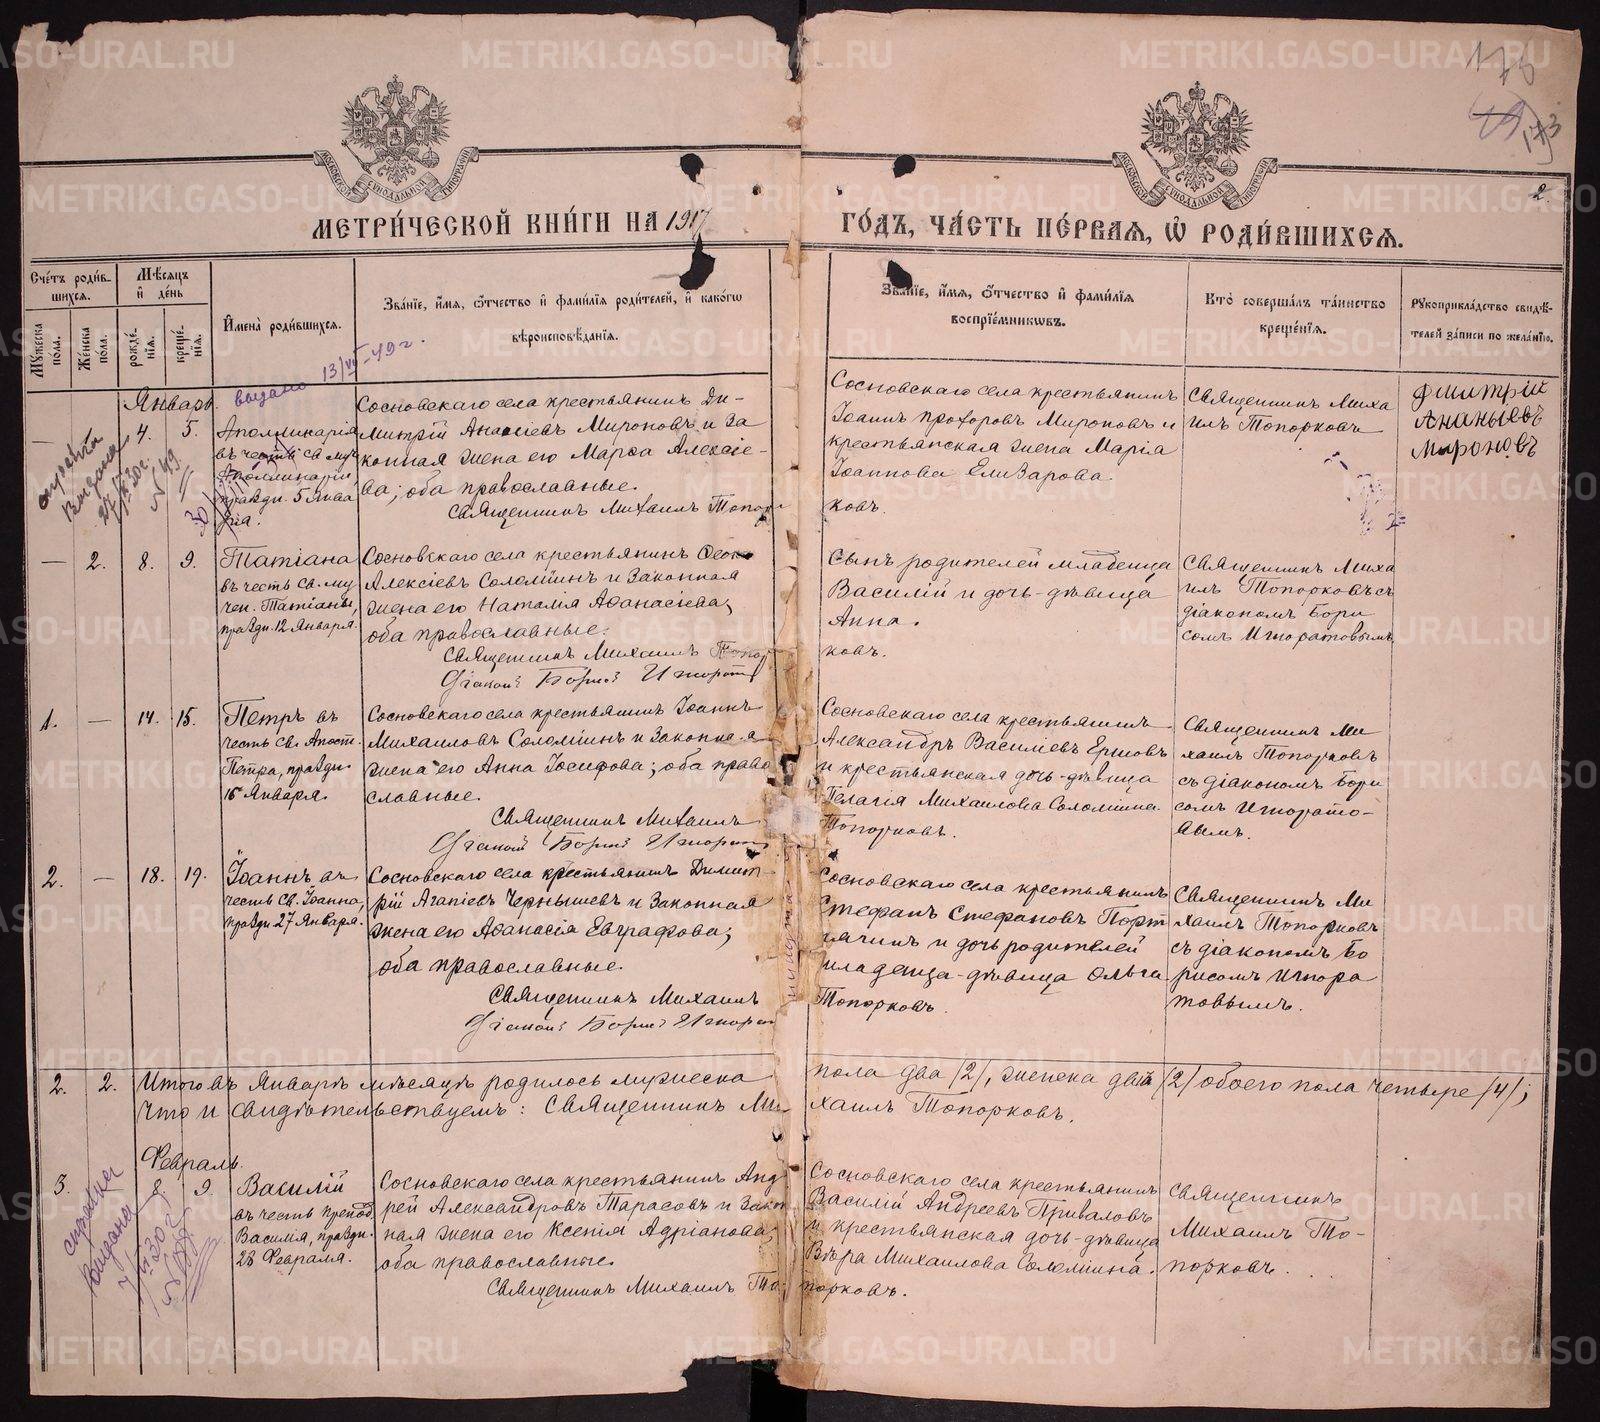 METRIKI.GASO-URAL.RU
176
49
173
МОСКОВСКОЙ СѴНОДАЛЬНОЙ ТИПОГРАФІИ
МОСКОВСКОЙ СѴНОДАЛЬНОЙ ТИПОГРАФІИ
2.
МЕТРИ́ЧЕСКОЙ КНИ́ГИ НА 1917
ГО́ДЪ, ЧА́СТЬ ПЕ́РВАЯ, Ѽ РОДИ́ВШИХСЯ.
Сче́тъ роди́в-
шихся.
Мѣ́сяцъ
и҆ де́нь
Мꙋ́жеска по́ла.
Же́нска по́ла.
рожде́-
нїя.
креще́-
нїя.
И҆мена̀ роди́вшихся.
Зва́нїе, и҆́мя, ѻ҆́тчество и҆ фами́лїя роди́телей, и҆ како́гѡ
вѣроисповѣ́данїя.
Зва́нїе, и҆́мя, ѻ҆́тчество и҆ фами́лїя
воспрїе́мникѡвъ.
Кто̀ соверша́лъ та́инство
креще́нїя.
Рꙋкоприкла́дство свидѣ́-
телей за́писи по жела́нїю.
выдано 13/VI-49 г.
Январь.
— 4. 5.
справка
выдана
№ 49
Аполлинарія
въ честь св. муч.
Аполлинаріи,
праздн. 5 Янва
ря.
Сосновскаго села крестьянинъ Ди-
митрій Ананіевъ Мироновъ и за
конная жена его Марѳа Алексіе-
ва; оба православные.
Священникъ Михаилъ Топор
Сосновскаго села крестьянинъ
Іоаннъ Прохоровъ Мироновъ и
крестьянская жена Марія
Іоаннова Елизарова.
ковъ.
Священникъ Миха
илъ Топорковъ
Дмитрій
Ананьевъ
Мироновъ
— 2. 8. 9.
Татіана
въ честь св. му
чен. Татіаны,
праздн. 12 Января.
Сосновскаго села крестьянинъ
Алексіевъ Соломинъ и законная
жена его Наталія Аѳанасіева;
оба православные.
Священникъ Михаилъ Топор
Діаконъ Борисъ Игнорат
Сынъ родителей младенца
Василій и дочь-дѣвица
Анна.
ковъ.
Священникъ Миха
илъ Топорковъ съ
діакономъ Бори
сомъ Игноратовымъ
1. — 14. 15.
Петръ въ
честь св. Апост.
Петра, праздн.
16 Января.
Сосновскаго села крестьянинъ Іоаннъ
Михаиловъ Соломинъ и законная
жена его Анна Іосифова; оба право
славные.
Священникъ Михаилъ
Діаконъ Борисъ Игнорат
Сосновскаго села крестьянинъ
Александръ Василіевъ Ершовъ
и крестьянская дочь-дѣвица
Пелагія Михаилова Соломина.
Топорковъ.
Священникъ Ми
хаилъ Топорковъ
съ діакономъ Бори
сомъ Игнорато-
вымъ.
2. — 18. 19.
Іоаннъ въ
честь св. Іоанна,
праздн 27 Января.
Сосновскаго села крестьянинъ Димит
рій Агапіевъ Чернышевъ и законная
жена его Аѳанасія Евграфова;
оба православные.
Священникъ Михаилъ
Діаконъ Борисъ Игнорат
Сосновскаго села крестьянинъ
Стефанъ Стефановъ Порт
нягинъ и дочь родителей
младенца-дѣвица Ольга
Топорковъ.
Священникъ Ми
хаилъ Топорковъ
съ діакономъ Бо
рисомъ Игнора
товымъ.
2. 2. Итого въ Январѣ мѣсяцѣ родилось мужеска пола два /2/, женска двѣ /2/ обоего пола четыре /4/;
Что и свидѣтельствуемъ: Священникъ Михаилъ Топорковъ.
Февраль.
3. 8. 9.
справка
выдана
Василій
въ честь препод
Василія, праздн.
28 Февраля.
Сосновскаго села крестьянинъ Анд
рей Александровъ Тарасовъ и закон
ная жена его Ксенія Адріанова;
оба православные.
Священникъ Михаилъ То
Сосновскаго села крестьянинъ
Василій Андреевъ Приваловъ
и крестьянская дочь-дѣвица
Вѣра Михаилова Соломина.
порковъ.
Священникъ
Михаилъ То-
порковъ.